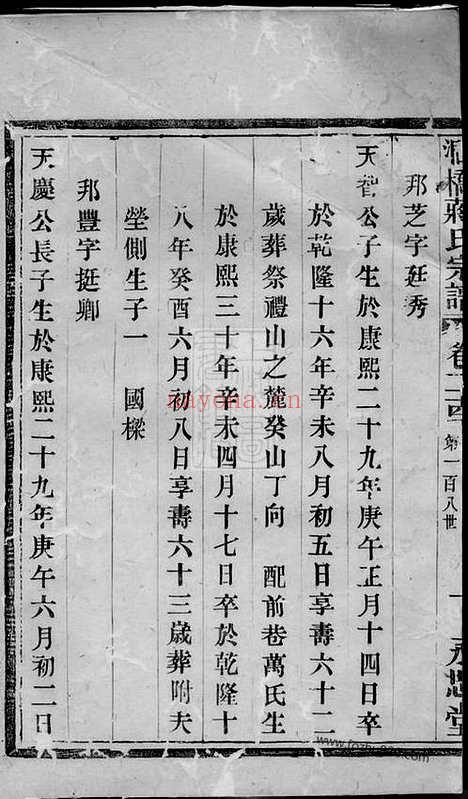 橋蔣氏宗譜 卷 第一百八世 十 永思堂
邦芝字廷秀
天智公子生於康熙二十九年庚午正月十四日卒
於乾隆十六年辛未八月初五日享壽六十二
歲葬祭禮山之麓癸山丁向 配前巷萬氏生
於康熙三十年辛未四月十七日卒於乾隆十
八年癸酉六月初八日享壽六十三歲葬附夫
塋側生子一 國樑
邦豐字挺卿
天慶公長子生於康熙二十九年庚午六月初二日